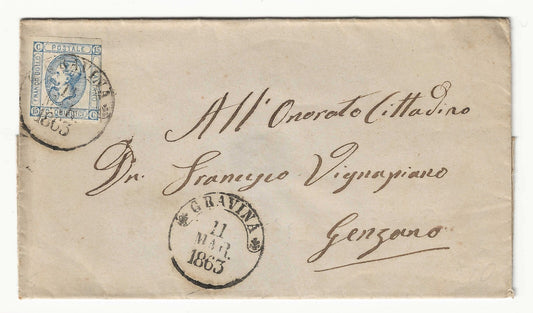 C POSTALE
FRANCOBOLLO
GRAVINA
1863
All'Onorato Cittadino
Dn. Francesco Vignapiano
Genzano
GRAVINA
11
MAR.
1863